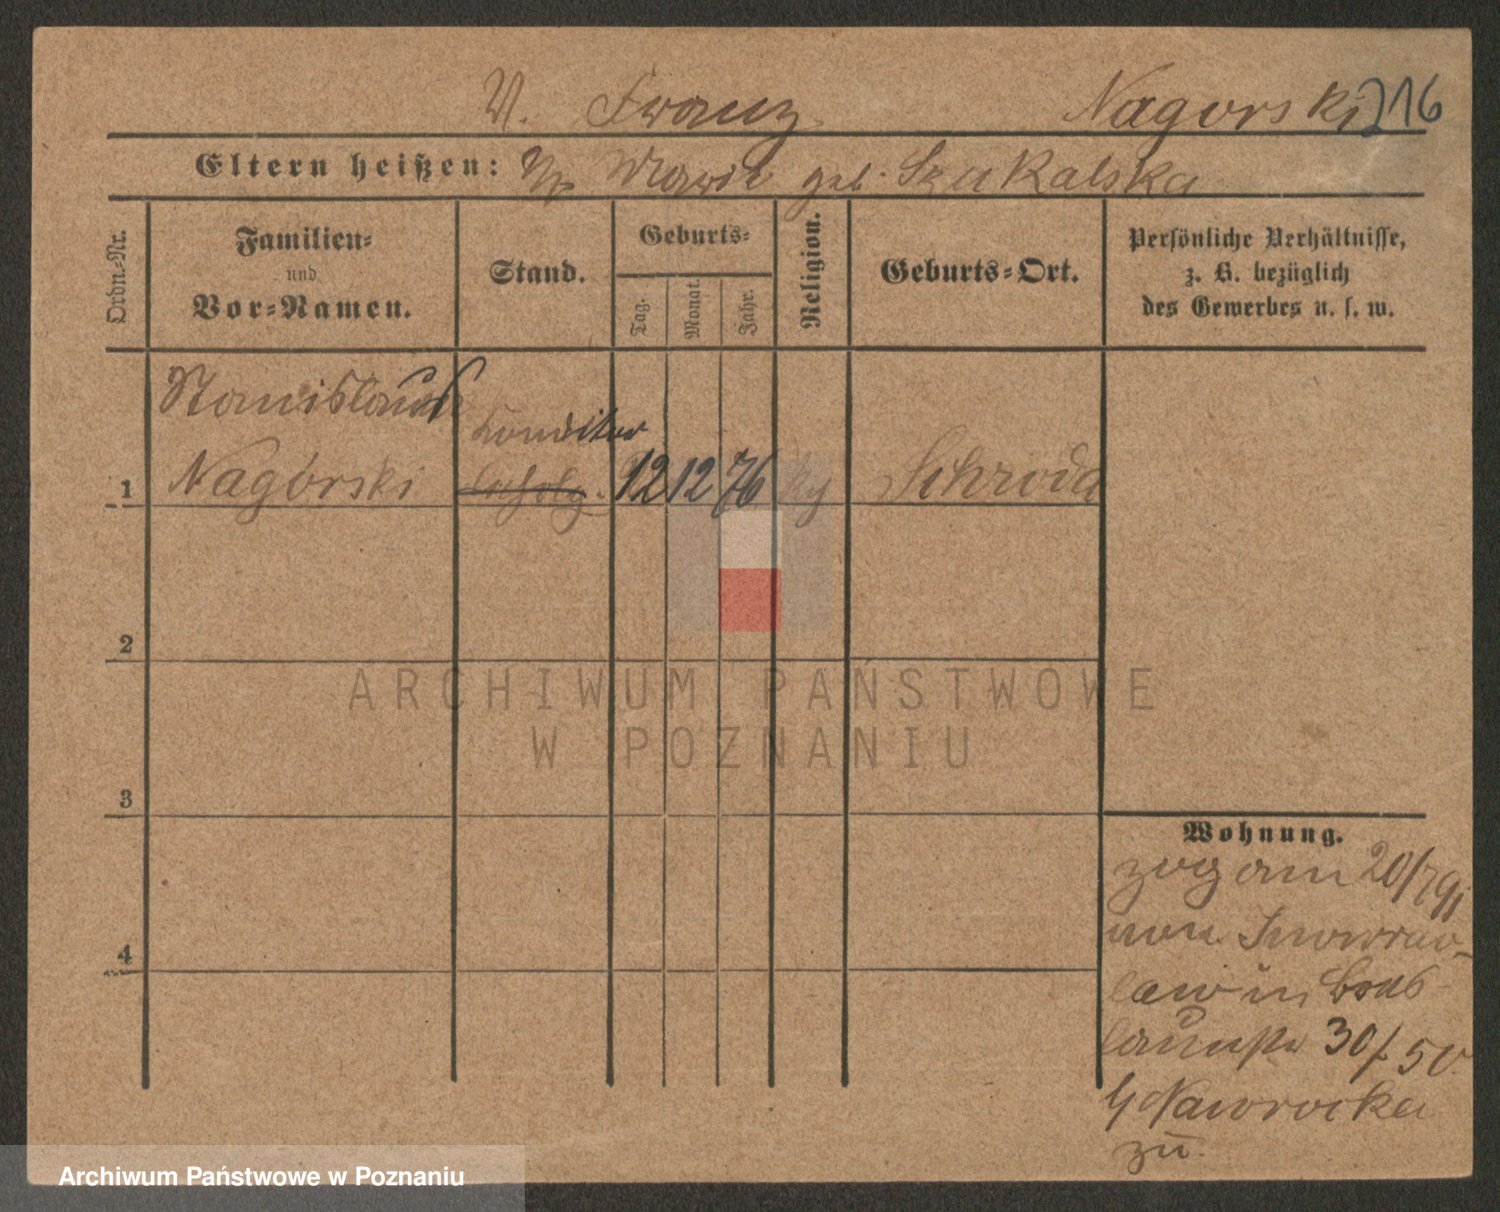 V. Franz Nagorski 216
Eltern heißen: M. Marie geb. Szukalska
Ordn.-Nr.
Familien-
und
Vor-Namen.
Stand.
Geburts-
Tag.
Monat.
Jahr.
Religion.
Geburts-Ort.
Persönliche Verhältnisse,
z. B. bezüglich
des Gewerbes u. s. w.
Stanislaus
Konditor
1 Nagórski 12 12 76 Schroda
2
3
4
Wohnung.
zog am 20/7 91
von Inowraz-
law in
30/. 50
Nawrocka
zu.
ARCHIWUM PAŃSTWOWE
W POZNANIU
Archiwum Państwowe w Poznaniu